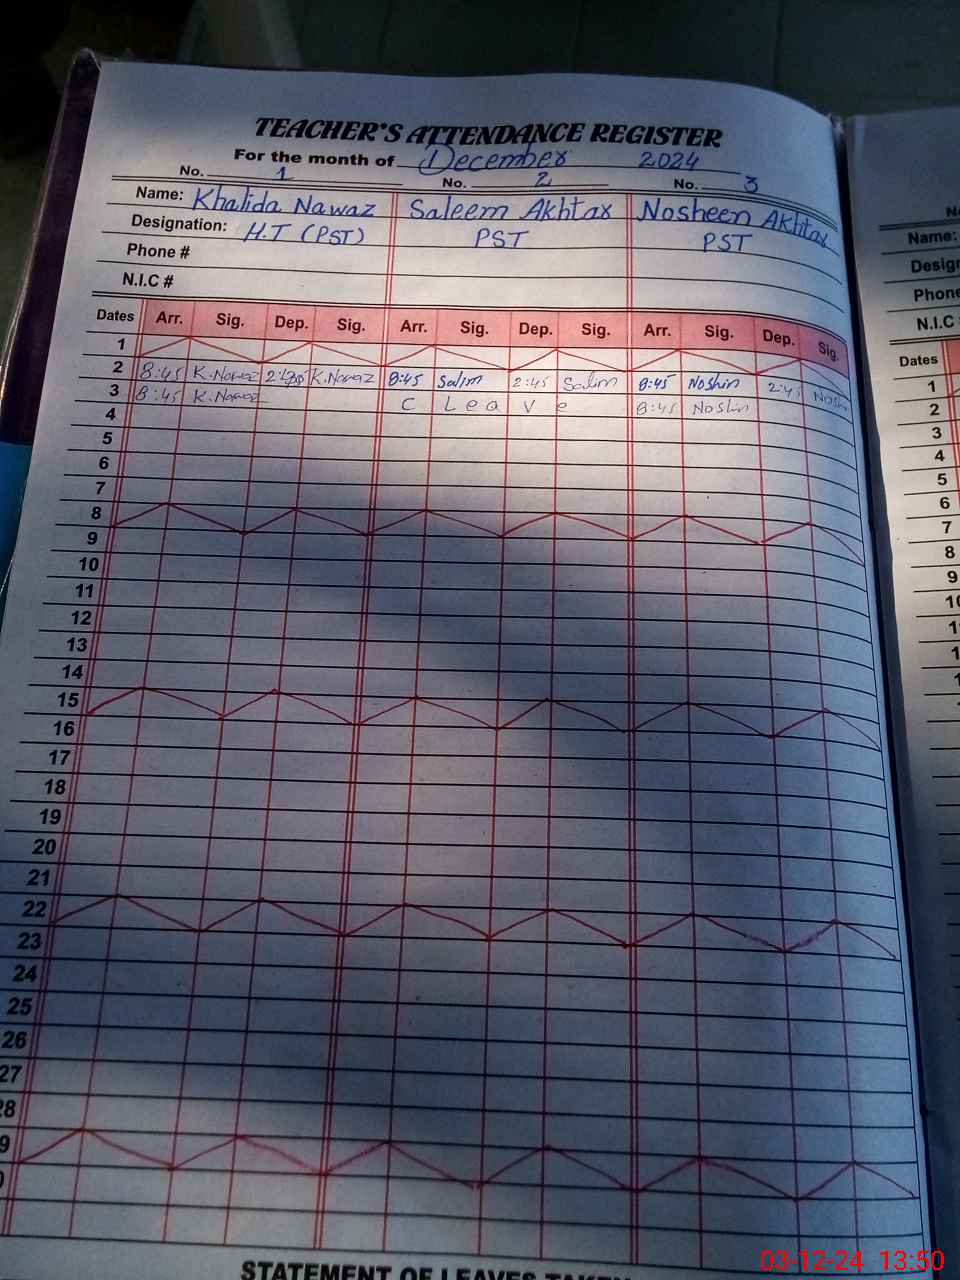 TEACHER'S ATTENDANCE REGISTER
For the month of December 2024
No. 1 No. 2 No. 3
Name: Khalida Nawaz Saleem Akhtar Nosheen Akhtar
Designation: H.T (PST) PST PST
Phone #
N.I.C #
Dates Arr. Sig. Dep. Sig. Arr. Sig. Dep. Sig. Arr. Sig. Dep. Sig.
1
2 8:45 K.Nawaz K.Nawaz 8:45 Salim 2:45 Salim 8:45 Noshin 2:45
3 8:45 K.Nawaz C Leave 8:45 Noshin
4
5
6
7
8
9
10
11
12
13
14
15
16
17
18
19
20
21
22
23
24
25
26
27
28
9
STATEMENT OF LEAVES
Name:
Phone
N.I.C
Dates
1
2
3
4
5
6
7
8
9
10
03-12-24 13:50